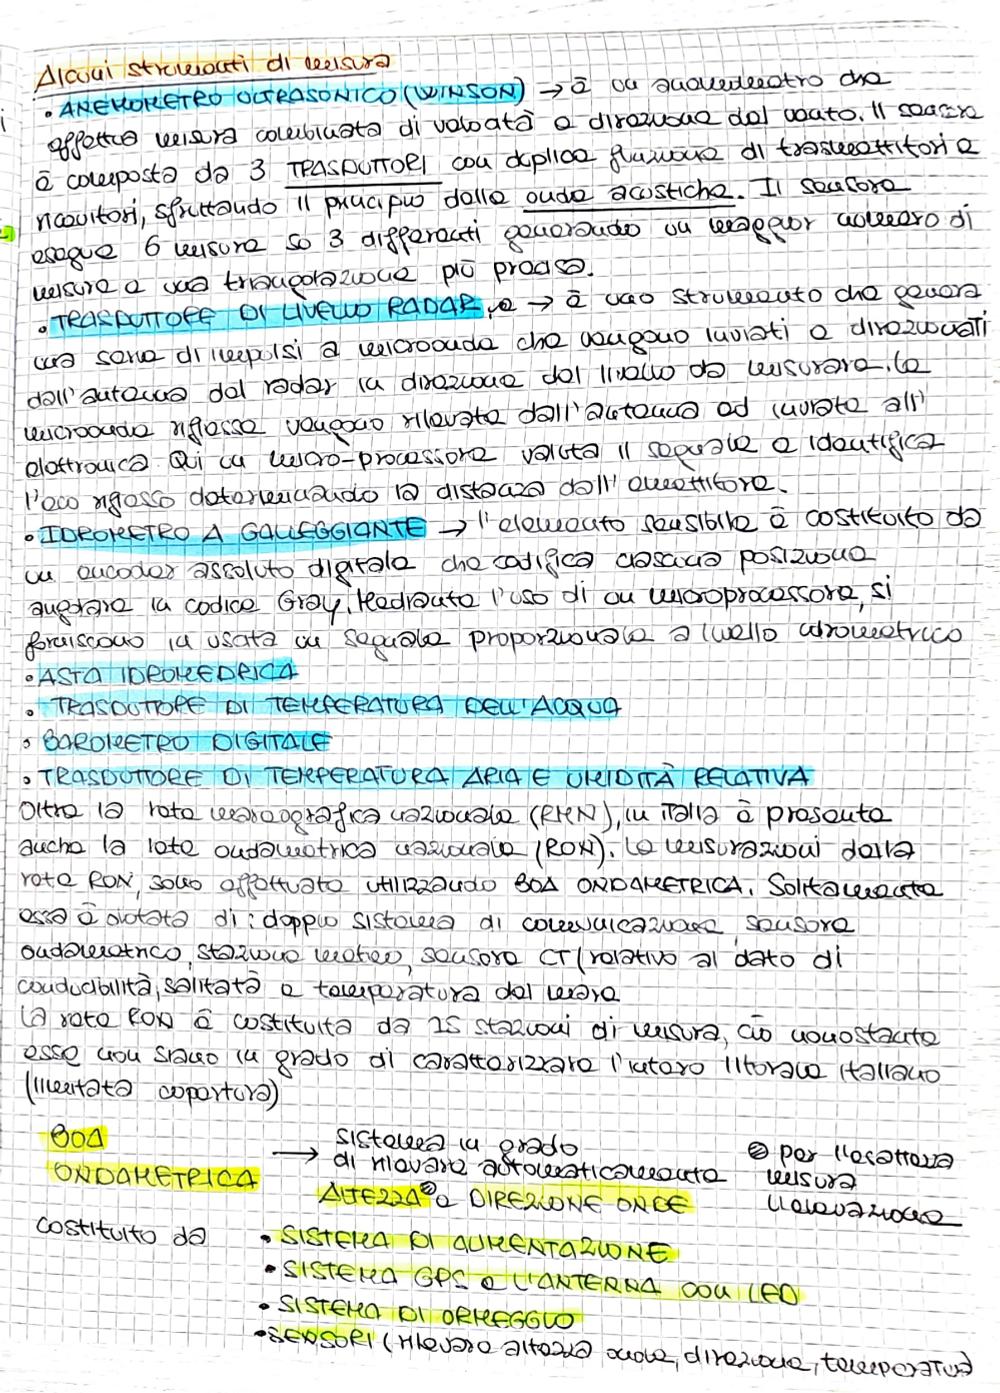 Alcuni strumenti di misura
• ANEMOMETRO ULTRASONICO (WINSON) → è un anemometro che
effettua misura combinata di velocità e direzione del vento. Il sensore
è composto da 3 TRASDUTTORI con duplice funzione di trasmettitori e
ricevitori, sfruttando il principio delle onde acustiche. Il sensore
esegue 6 misure su 3 differenti generando un maggior numero di
misure e una triangolazione più precisa.
• TRASDUTTORE DI LIVELLO RADAR → è uno strumento che genera
una serie di impulsi a microonde che vengono inviati e direzionati
dall'antenna del radar in direzione del livello da misurare. Le
microonde riflesse vengono rilevate dall'antenna ed inviate all'
elettronica. Qui un micro-processore valuta il segnale e identifica
l'eco riflesso determinando la distanza dall'emettitore.
• IDROMETRO A GALLEGGIANTE → l'elemento sensibile è costituito da
un encoder assoluto digitale che codifica ciascuna posizione
angolare in codice Gray. Mediante l'uso di un microprocessore, si
forniscono in uscita un segnale proporzionale a livello idrometrico
• ASTA IDROMEDRICA
• TRASDUTTORE DI TEMPERATURA DELL'ACQUA
• BAROMETRO DIGITALE
• TRASDUTTORE DI TEMPERATURA ARIA E UMIDITÀ RELATIVA
Oltre la rete mareografica nazionale (RMN), in Italia è presente
anche la rete ondametrica nazionale (RON). Le misurazioni della
rete RON, sono effettuate utilizzando BOA ONDAMETRICA. Solitamente
essa è dotata di: doppio sistema di comunicazione, sensore
ondametrico, stazione meteo, sensore CT (relativo al dato di
conducibilità, salinità e temperatura del mare
La rete RON è costituita da 15 stazioni di misura, ciò nonostante
esse non siano in grado di caratterizzare l'intero litorale italiano
(limitata copertura)
BOA
ONDAMETRICA
→ sistema in grado
di rilevare automaticamente
ALTEZZA e DIREZIONE ONDE
per l'esattezza
misura
l'elevazione
costituito da
• SISTEMA DI ALIMENTAZIONE
• SISTEMA GPS e L'ANTENNA con LED
• SISTEMA DI ORMEGGIO
• SENSORI (rilevare altezza onde, direzione, temperatura